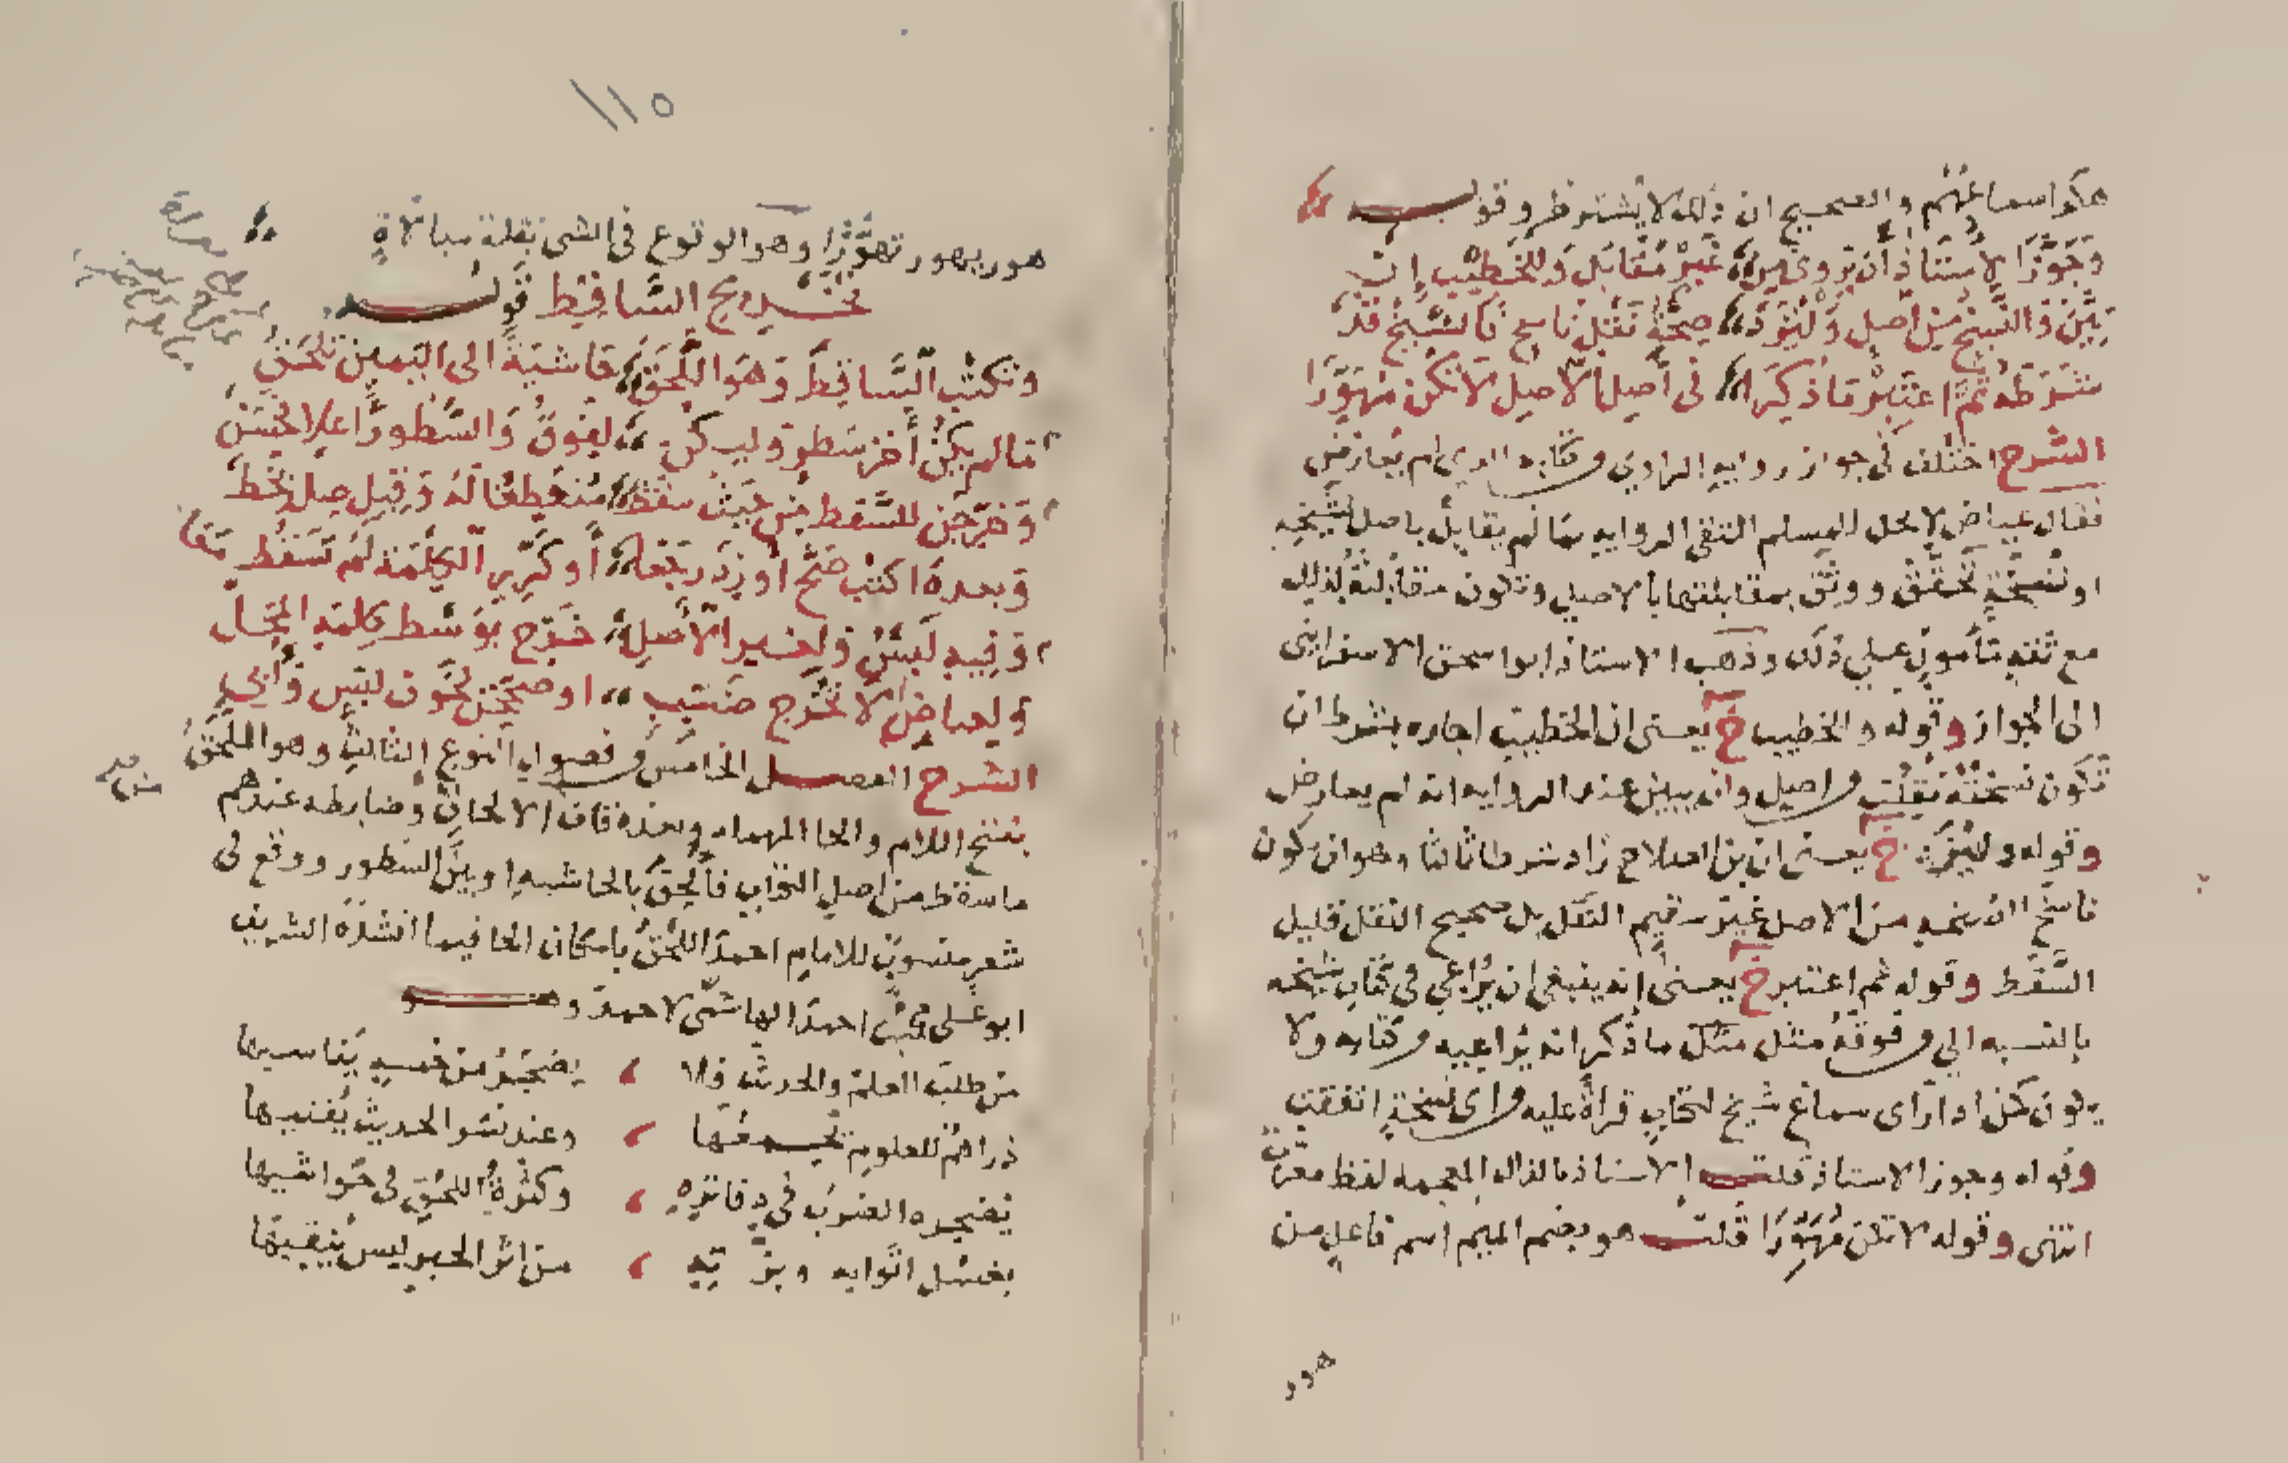 هكذا سماعهم والصحيح ان ذلك لا يشترط وقوله
وَجَوَّزَا لاُستَاذُ أن يَروي مِن غَيرِ مُقَابَلٍ وَللخَطيْبِ إِن
بَيَّنَ وَالنَّسخُ مِن اَصلٍ وَلْيُزَد صِحَّةُ نَقْلِ نَاسخٍ فَالشَّيخُ قَدْ
شَرَطَهُ ثُمَّ اعتَبِرْ مَا ذُكِرَا في أَصلِ الأَصلِ لاَ تَكُن مُهَوِّرَا
الشرح اختلف في جواز رواية الراوي من كتابه الذي لم يعارض
فقال عياض لا يحل للمسلم التقي الرواية بما لم يقابل باصل شيخه
او نسخة تحقق ووثق بمقابلتها بالاصل وتكون مقابلته لذلك
مع ثقة مأمون على ذلك وذهب الاستاذ ابو اسحق الاسفرايني
الى الجواز وقوله وللخطيب خ يعني ان الخطيب اجازه بشرط ان
تكون نسخته نقلت من اصل وان يبين عند الرواية انه لم يعارض
وقوله وليزد خ يعني ان بن الصلاح زاد شرطا ثالثا وهو ان يكون
ناسخ النسخه من الاصل غير سقيم النقل بل صحيح النقل قليل
السَّقط وقوله ثم اعتبر خ يعني انه ينبغي ان يُراعي في كتاب شيخه
بالنسبه الي من فوقه مثل ما ذكر انه يراعيه من كتابه ولا
يكون كمن اذا رأى سماع شيخ لكتاب قرأه عليه من اي نسخة اتفقت
وقوله وجوز الاستاذ قلت الاستاذ بالذال المعجمه لفظ معرّب
انتهى وقوله لا تكن مُهَوِّرَا قلت هو بضم الميم اسم فاعل من
هور
١١٥
هور يهور تهوُّرًا وهو الوقوع في الشي بقلة مبالاةٍ
تخريج الساقط قوله
وَيُكتَبُ السَّاقِطُ وَهوَ اللَّحَقُ حَاشيَةً الى اليَمينِ يُلحَقُ
مَا لم يَكُنْ أَخِرَ سَطرٍ وليَكُن لِفَوقُ وَالسُّطورُ اعلا فحَسُنْ
وَخَرِّجَنْ للسَّقطِ مِن حَيثُ سَقَطْ مُنعَطِفًا لَهُ وَقِيلَ صِل بخَطْ
وَبَعدهُ اكتُب صَحَّ اوْ زِد رَجَعَا أَو كَرِّرِ الكِلْمَةَ لَم تَسقُط مَعَا
وَفِيهِ لَبسٌ وَلِغَيرِ الأَصلِ خَرِّج بِوَسْطِ كِلمَةِ المَحلِّ
وَلعياضٍ لاَ تُخَرِّج ضَبِّبِ او صَحِّحَن لخَوفِ لَبسٍ وَأُبي
الشرح الفصل الخامس من فصول النوع الثالث وهو اللَّحَقُ
بفتح اللام والحا المهملة وبعده قاف الالحاق وضابطه عندهم
ما سقط من اصل الكتاب فأُلحِقَ بالحاشية او بين السطور ووقع في
شعر منسوب للامام احمد اللَّحْقُ باسكان الحا فيما انشده الشريف
ابو علي محمد بن احمد الهاشمي لاحمد وهو
من طلب العلم والحديث فلا ، يضجرُ من خمسةٍ يُقاسيها
دراهم للعلوم يجمعها ، وعند نشر الحديث يُفنيها
يضجره الضرب في دفاتره ، وكثرة اللحق في حواشيها
يغسل اثوابه وبزّته ، من اثر الحبر ليس يُنقيها